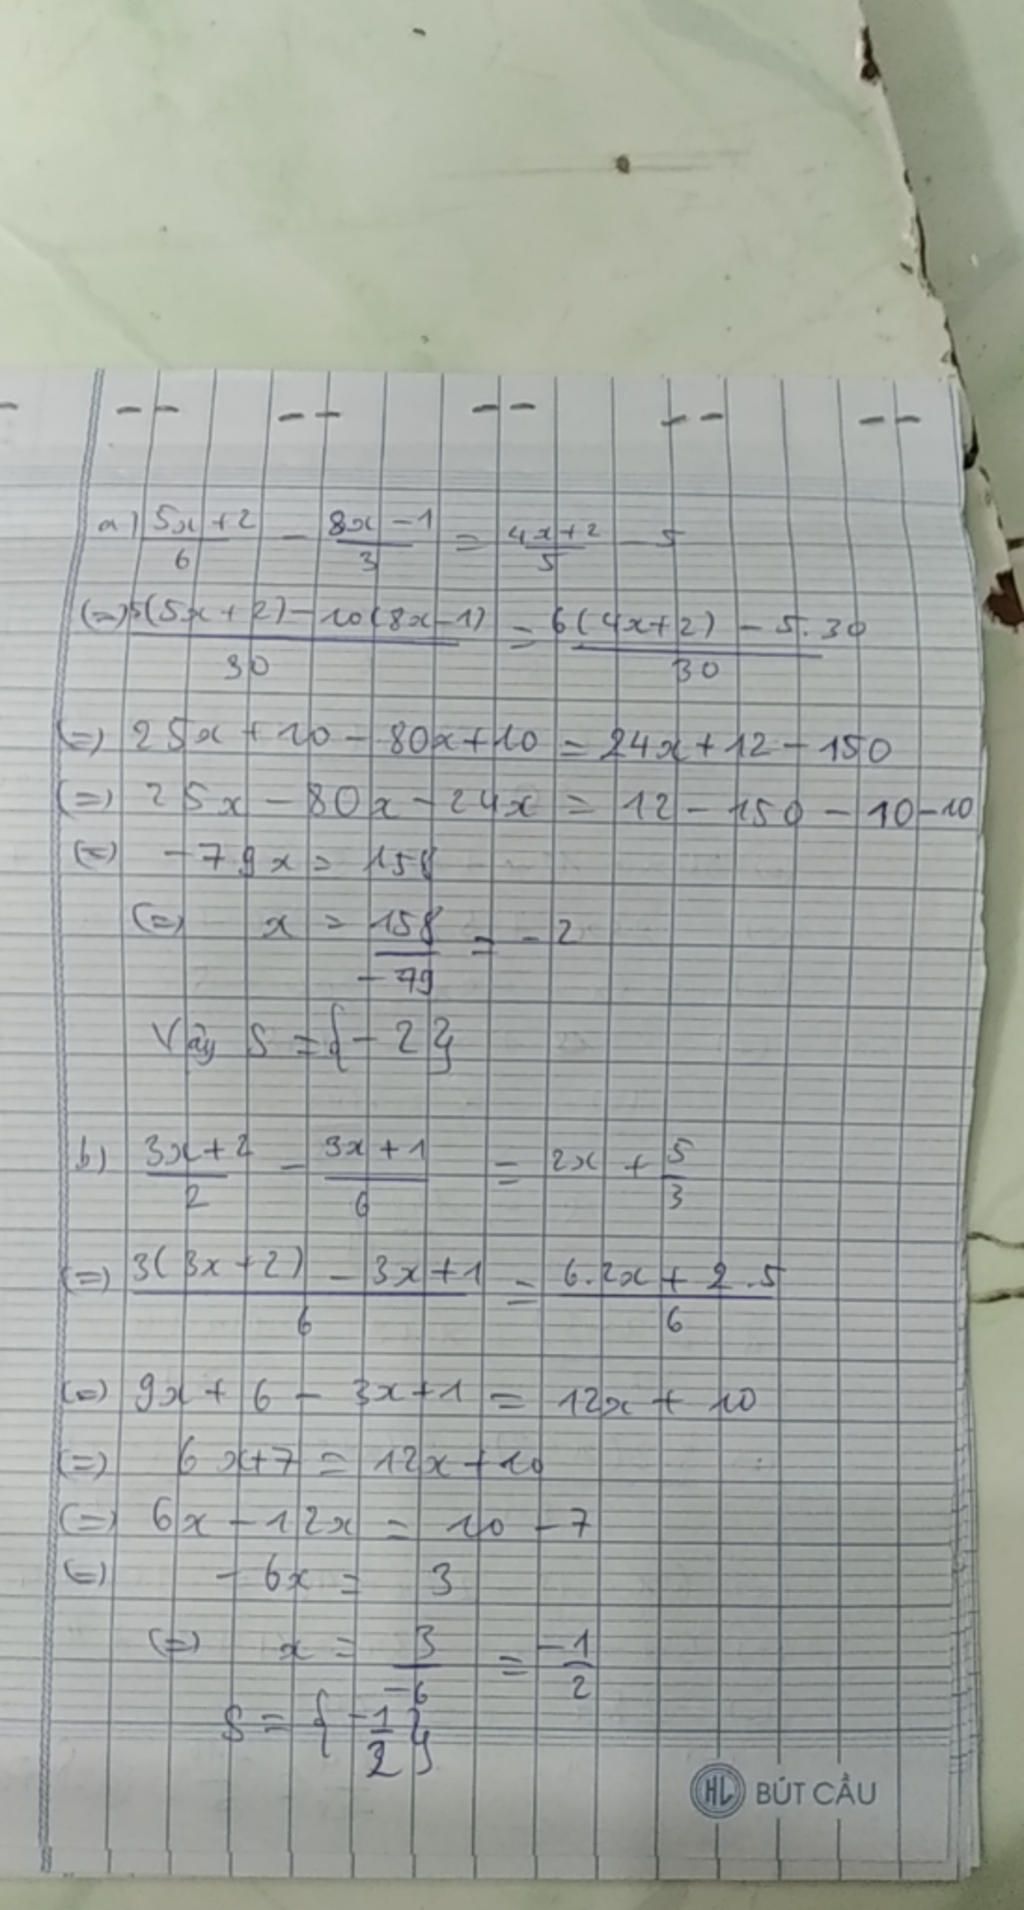 a) \frac{5x+2}{6} - \frac{8x-1}{3} = \frac{4x+2}{5} - 5
(=) \frac{5(5x+2)-10(8x-1)}{30} = \frac{6(4x+2)-5.30}{30}
(=) 25x+10-80x+10 = 24x+12-150
(=) 25x-80x-24x = 12-150-10-10
(=) -79x = 158
(=) x = \frac{158}{-79} = -2
Vậy S = {-2}
b) \frac{3x+2}{2} - \frac{3x+1}{6} = 2x + \frac{5}{3}
(=) \frac{3(3x+2)-3x+1}{6} = \frac{6.2x+2.5}{6}
(=) 9x+6-3x+1 = 12x+10
(=) 6x+7 = 12x+10
(=) 6x-12x = 10-7
(=) -6x = 3
(=) x = \frac{3}{-6} = \frac{-1}{2}
S = {\frac{-1}{2}}
HL BÚT CẦU